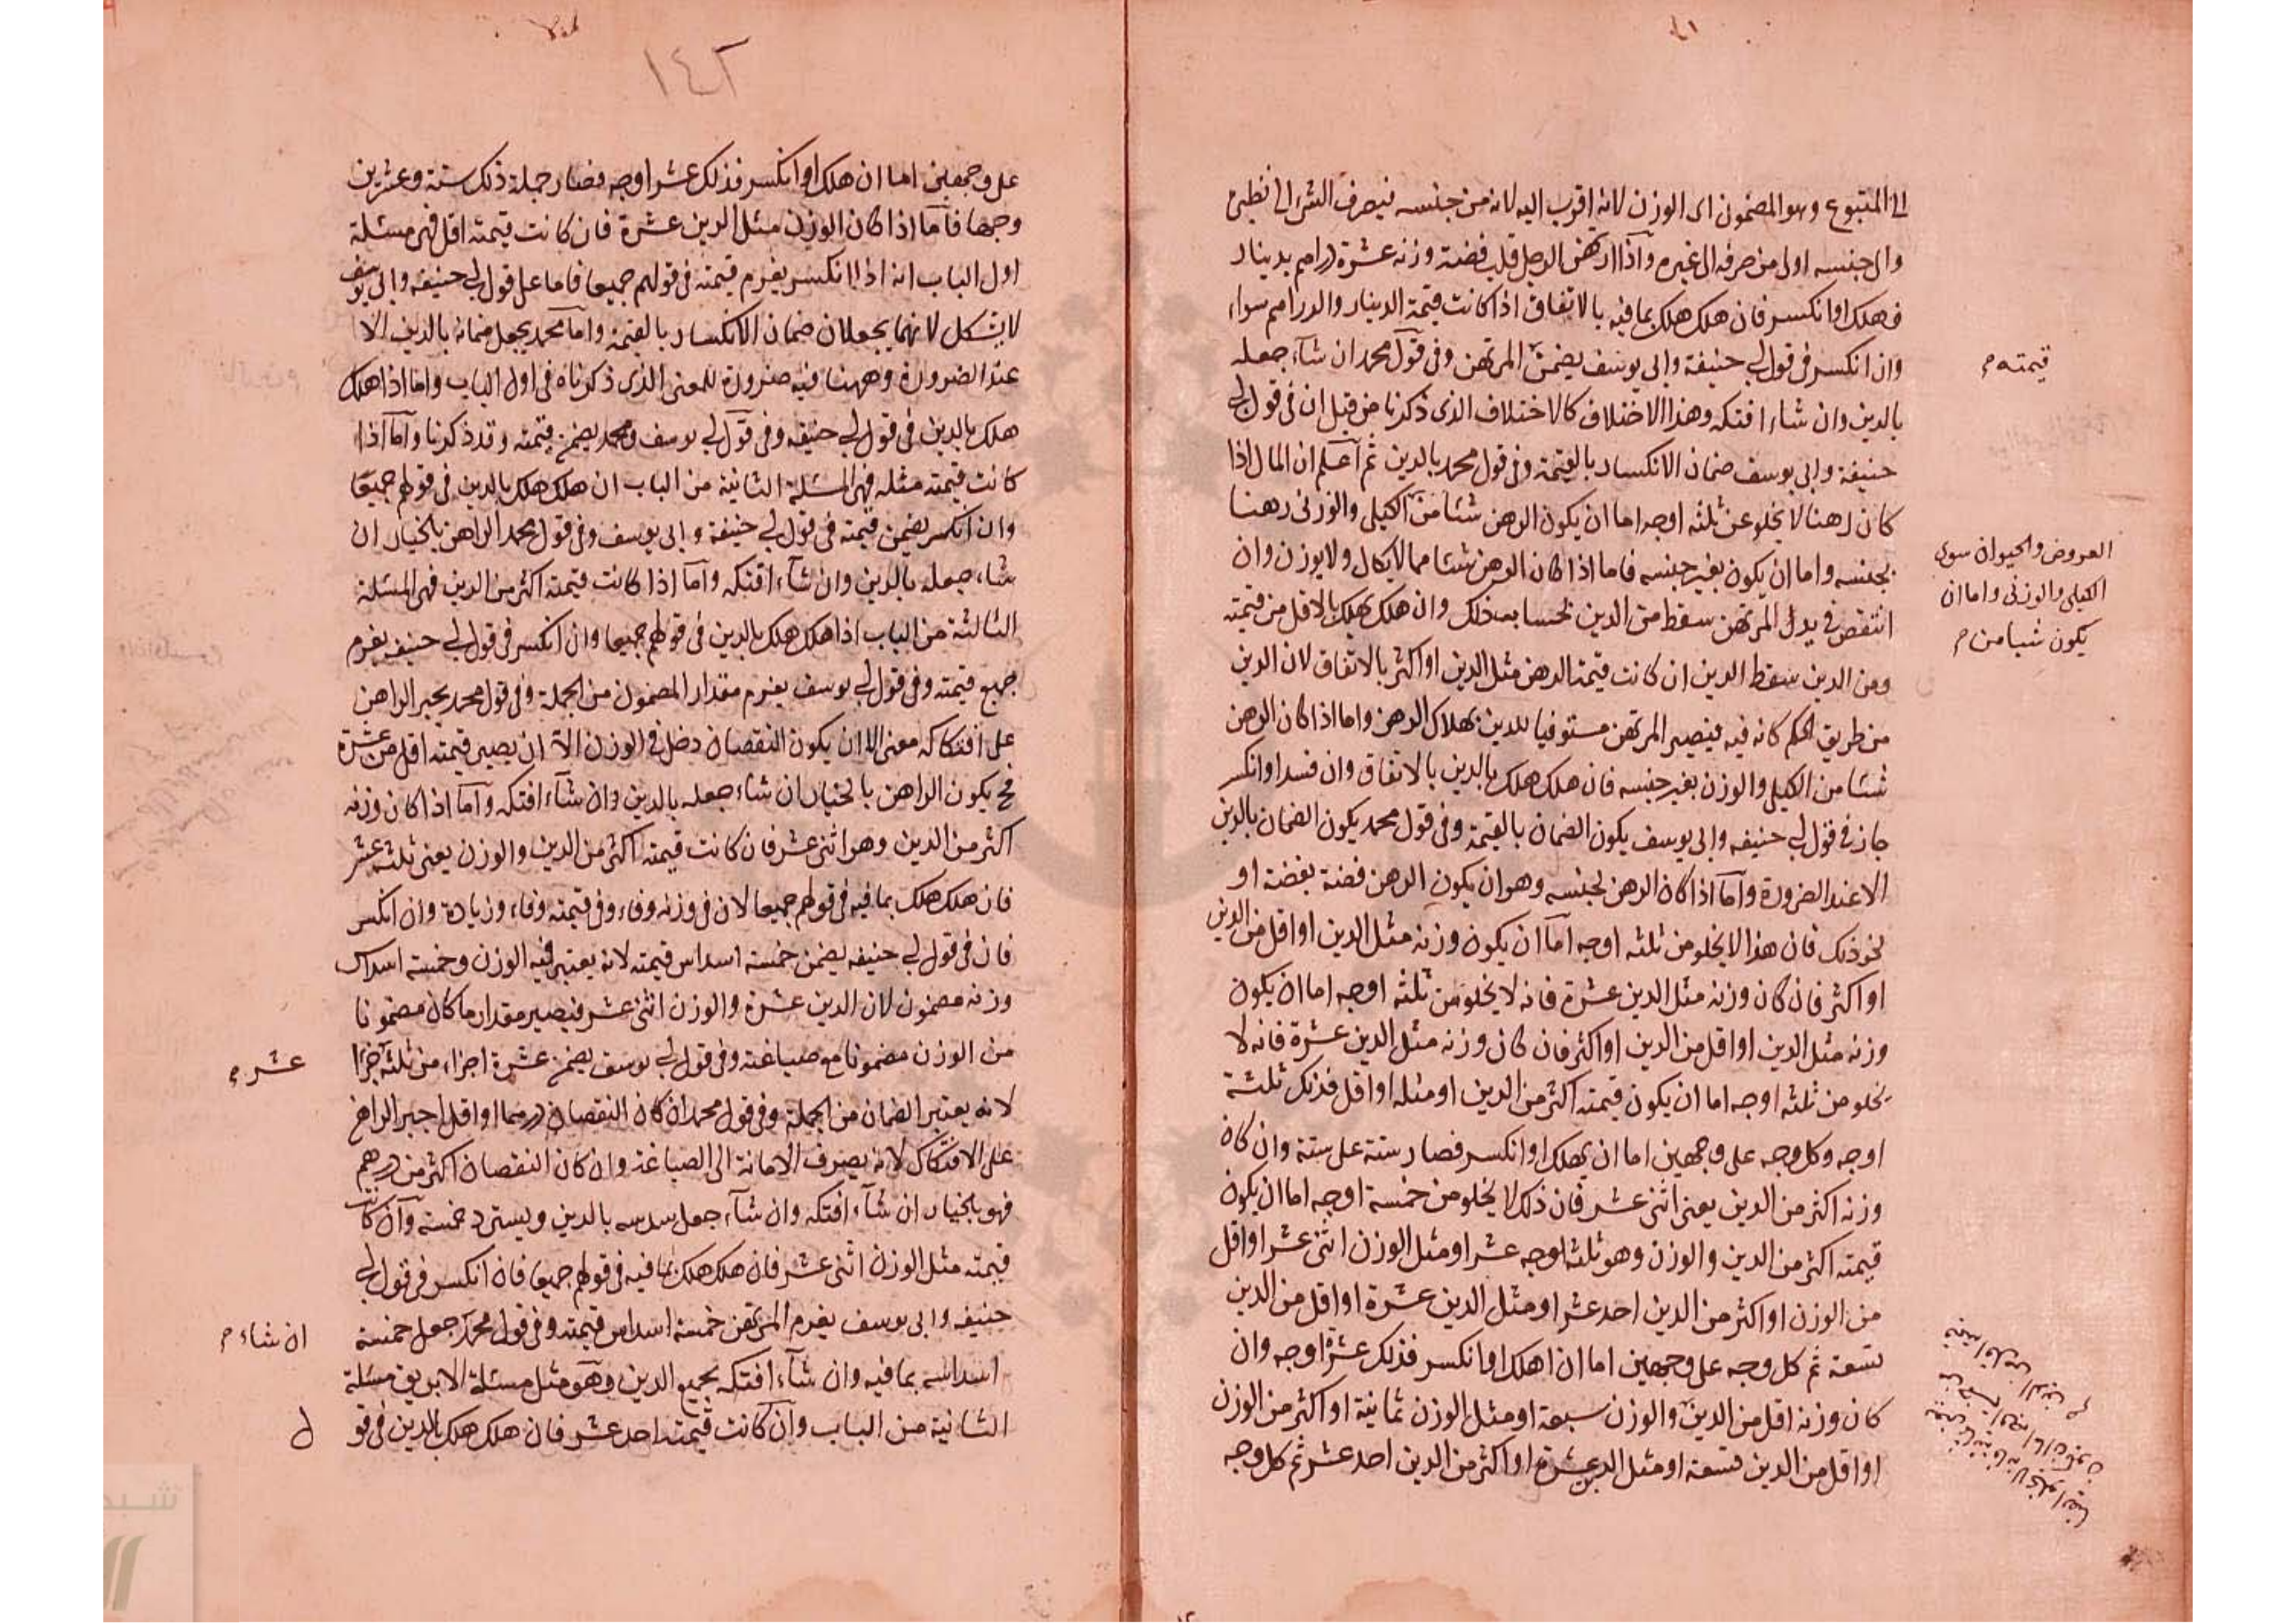 الى المتبوع وهو المضمون اى الوزن لانه اقرب اليه لانه من جنسه فيصرف الشئ الى
والى جنسه اولى من صرفه الى غيره واذا ارتهن الرجل قلب فضة وزنه عشرة دراهم بدينار
فهلك او انكسر فان هلك هلك بما فيه بالاتفاق اذا كانت قيمة الدينار والدراهم سواء
وان انكسر فى قول ابى حنيفة وابى يوسف يضمن المرتهن وفى قول محمد ان شاء جعله
قيمته م
بالدين وان شاء افتكه وهذا الاختلاف كالاختلاف الذى ذكرنا من قبل ان فى قول ابى
حنيفة وابى يوسف ضمان الانكسار بالقيمة وفى قول محمد بالدين ثم اعلم ان المال اذا
كان رهنا لا يخلو عن ثلثه اوجه اما ان يكون الرهن شئا من الكيلى والوزنى رهنا
العروض والحيوان سوى
الكيلى والوزنى واما ان
يكون شيا من م
بجنسه واما ان يكون بغير جنسه فاما اذا كان الرهن شئا مما لا يكال ولا يوزن وان
انتقص فى يد المرتهن سقط من الدين بحسابه ذلك وان هلك يهلك بالاقل من قيمته
ومن الدين سقط الدين ان كانت قيمة الرهن مثل الدين او اكثر بالاتفاق لان الدين
من طريق الحكم كانه فيه فيصير المرتهن مستوفيا للدين بهلاك الرهن واما اذا كان الرهن
شئا من الكيلى والوزن بغير جنسه فان هلك هلك بالدين بالاتفاق وان فسد او انكسر
جاز فى قول ابى حنيفه وابى يوسف يكون الضمان بالقيمة وفى قول محمد يكون الضمان بالدين
الا عند الضرورة واما اذا كان الرهن بجنسه وهو ان يكون الرهن فضة بفضة او
نحو ذلك فان هذا لا يخلو من ثلثه اوجه اما ان يكون وزنه مثل الدين او اقل من الدين
او اكثر فان كان وزنه مثل الدين عشرة فانه لا يخلو من ثلثه اوجه اما ان يكون
وزنه مثل الدين او اقل من الدين او اكثر فان كان وزنه مثل الدين عشرة فانه لا
يخلو من ثلثه اوجه اما ان يكون قيمته اكثر من الدين او مثله او اقل فذلك ثلثة
اوجه وكل وجه على وجهين اما ان يهلك او انكسر فصار ستة على ستة وان كان
وزنه اكثر من الدين يعنى اثنى عشر فان ذلك لا يخلو من خمسة اوجه اما ان يكون
قيمته اكثر من الدين والوزن وهو ثلثه اوجه عشر او مثل الوزن اثنى عشر او اقل
من الوزن او اكثر من الدين احد عشر او مثل الدين عشرة او اقل من الدين
تسعة ثم كل وجه على وجهين اما ان اهلك او انكسر فذلك عشرة اوجه وان
كان وزنه اقل من الدين والوزن سبعة او مثل الوزن ثمانية او اكثر من الوزن
او اقل من الدين تسعة او مثل الدين عشرة او اكثر من الدين احد عشر ثم كل وجه
١٤٢
على وجهين اما ان هلك او انكسر فذلك عشر اوجه فصار جملة ذلك ستة وعشرين
وجها فاما اذا كان الوزن مثل الدين عشرة فان كانت قيمته اقل فهى مسئلة
اول الباب انه اذا انكسر يغرم قيمته فى قولهم جميعا فاما على قول ابى حنيفه وابى يوسف
لا يشكل لانهما يجعلان ضمان الانكسار بالقيمة واما محمد يجعل ضمانه بالدين الا
عند الضرورة وههنا فيه ضرورة للمعنى الذى ذكرناه فى اول الباب واما اذا هلك
هلك بالدين فى قول ابى حنيفه وفى قول ابى يوسف ومحمد يضمن قيمته وقد ذكرنا واما اذا
كانت قيمته مثله فهى المسئلة الثانية من الباب ان هلك هلك بالدين فى قولهم جميعا
وان انكسر يضمن قيمته فى قول ابى حنيفة وابى يوسف وفى قول محمد الراهن بالخيار ان
شاء جعله بالدين وان شاء افتكه واما اذا كانت قيمته اكثر من الدين فهى المسئلة
الثالثة من الباب اذا هلك هلك بالدين فى قولهم جميعا وان انكسر فى قول ابى حنيفه يغرم
جميع قيمته وفى قول ابى يوسف يغرم مقدار المضمون من الجملة وفى قول محمد يجبر الراهن
على افتكاكه معنى الا ان يكون النقصان دخل فى الوزن الا ان يصير قيمته اقل من عشرة
فح يكون الراهن بالخيار ان شاء جعله بالدين وان شاء افتكه واما اذا كان وزنه
اكثر من الدين وهو اثنى عشر فان كانت قيمته اكثر من الدين والوزن يعنى ثلثه عشر
فان هلك هلك بما فيه فى قولهم جميعا لان فى وزنه وفاء وفى قيمته وفاء وزيادة وان انكسر
فان فى قول ابى حنيفه يضمن خمسة اسداس قيمته لانه يعتبر فيه الوزن وخمسة اسداس
وزنه مضمون لان الدين عشرة والوزن اثنى عشر فيصير مقدار ما كان مضمونا
من الوزن مضمونا مع صياغته وفى قول ابى يوسف يضمن عشرة اجزاء من ثلثه جزا
عشر م
لانه يعتبر الضمان من الجملة وفى قول محمد ان كان النقصان درهما او اقل اجبر الراهن
على الافتكاك لانه يصرف الامانة الى الصياغة وان كان النقصان اكثر من درهم
فهو بالخيار ان شاء افتكه وان شاء جعل سدسه بالدين ويسترد خمسة وان كانت
قيمته مثل الوزن اثنى عشر فان هلك هلك بما فيه فى قولهم جميعا فان انكسر فى قول ابى
حنيفه وابى يوسف يغرم المرتهن خمسة اسداس قيمته وفى قول محمد جعل خمسة
ان شاء م
اسداسه بما فيه وان شاء افتكه بجميع الدين وهو مثل مسئلة الابريق مسئلة
الثانية من الباب وان كانت قيمته احد عشر فان هلك هلك بالدين فى قو
ل